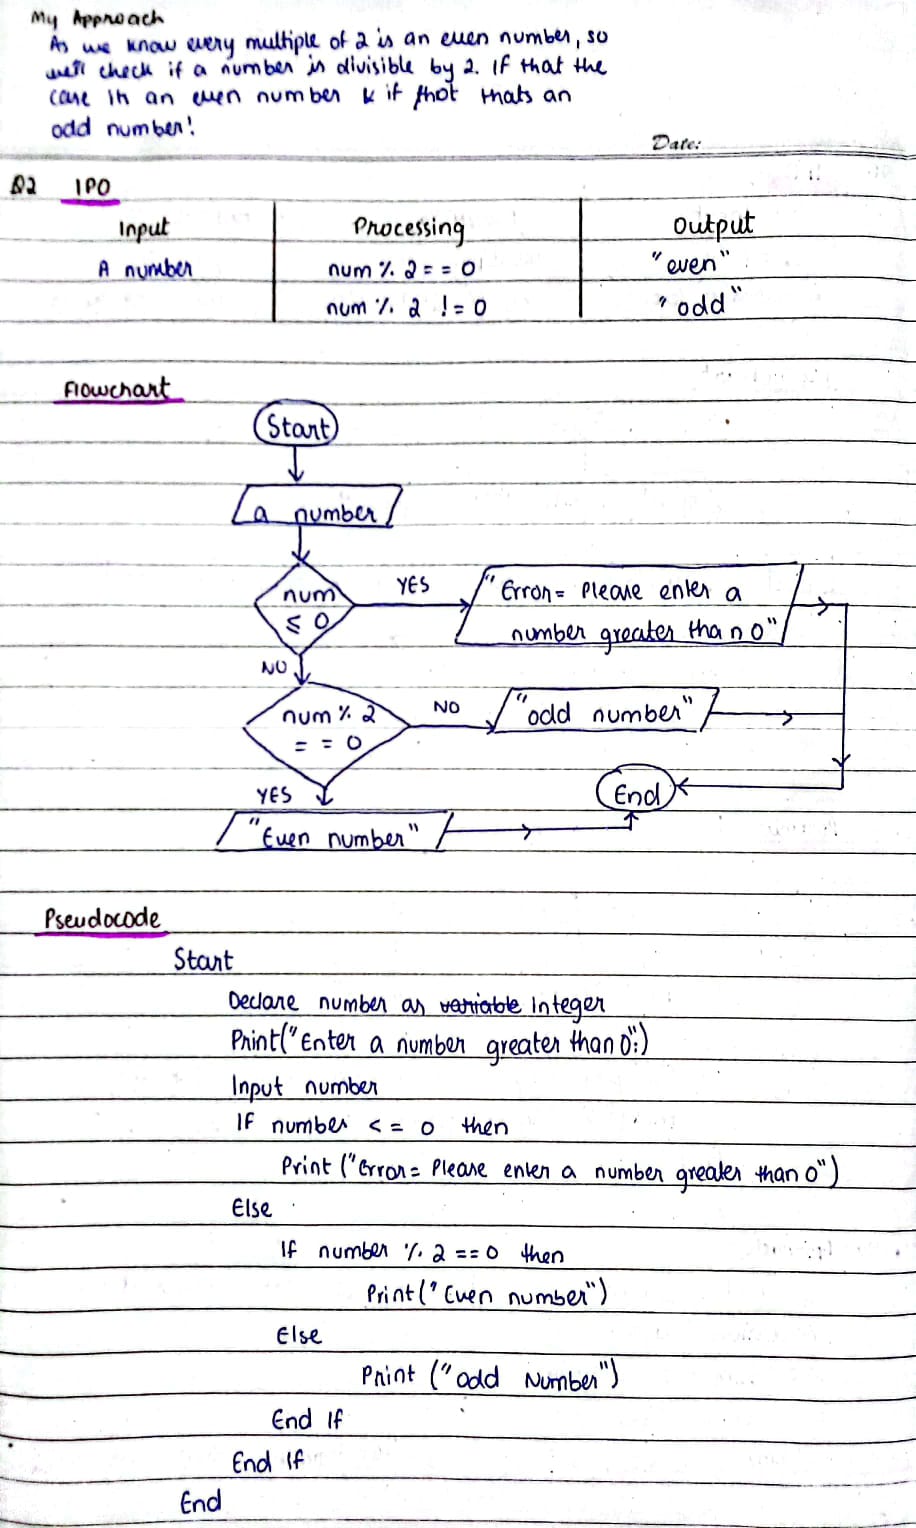 My Approach
As we know every multiple of 2 is an even number, so
we'll check if a number is divisible by 2. If that the
case its an even number & if not thats an
odd number!
Date:
Q2 IPO
Input Processing Output
A number num % 2 == 0 "even"
num % 2 != 0 "odd"
Flowchart
Start
a number
num YES "Error= Please enter a
≤ 0 number greater than 0"
NO
num % 2 NO "odd number"
== 0
YES End
"Even number"
Pseudocode
Start
Declare number as variable Integer
Print("Enter a number greater than 0:")
Input number
If number <= 0 then
Print ("Error= Please enter a number greater than 0")
Else
If number % 2 == 0 then
Print("Even number")
Else
Print ("odd Number")
End If
End If
End